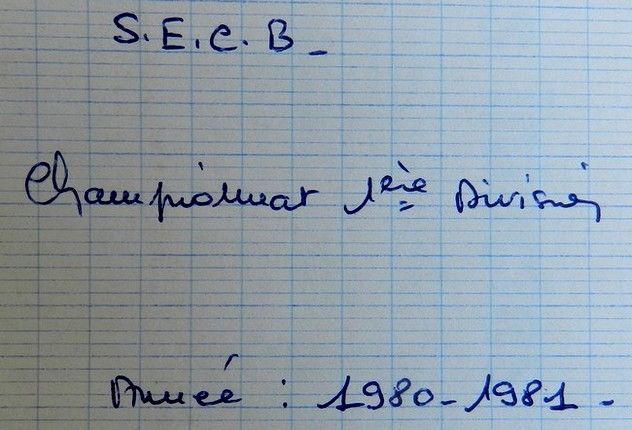 S.E.C.B -
Championnat 1ère Division
Année : 1980-1981.